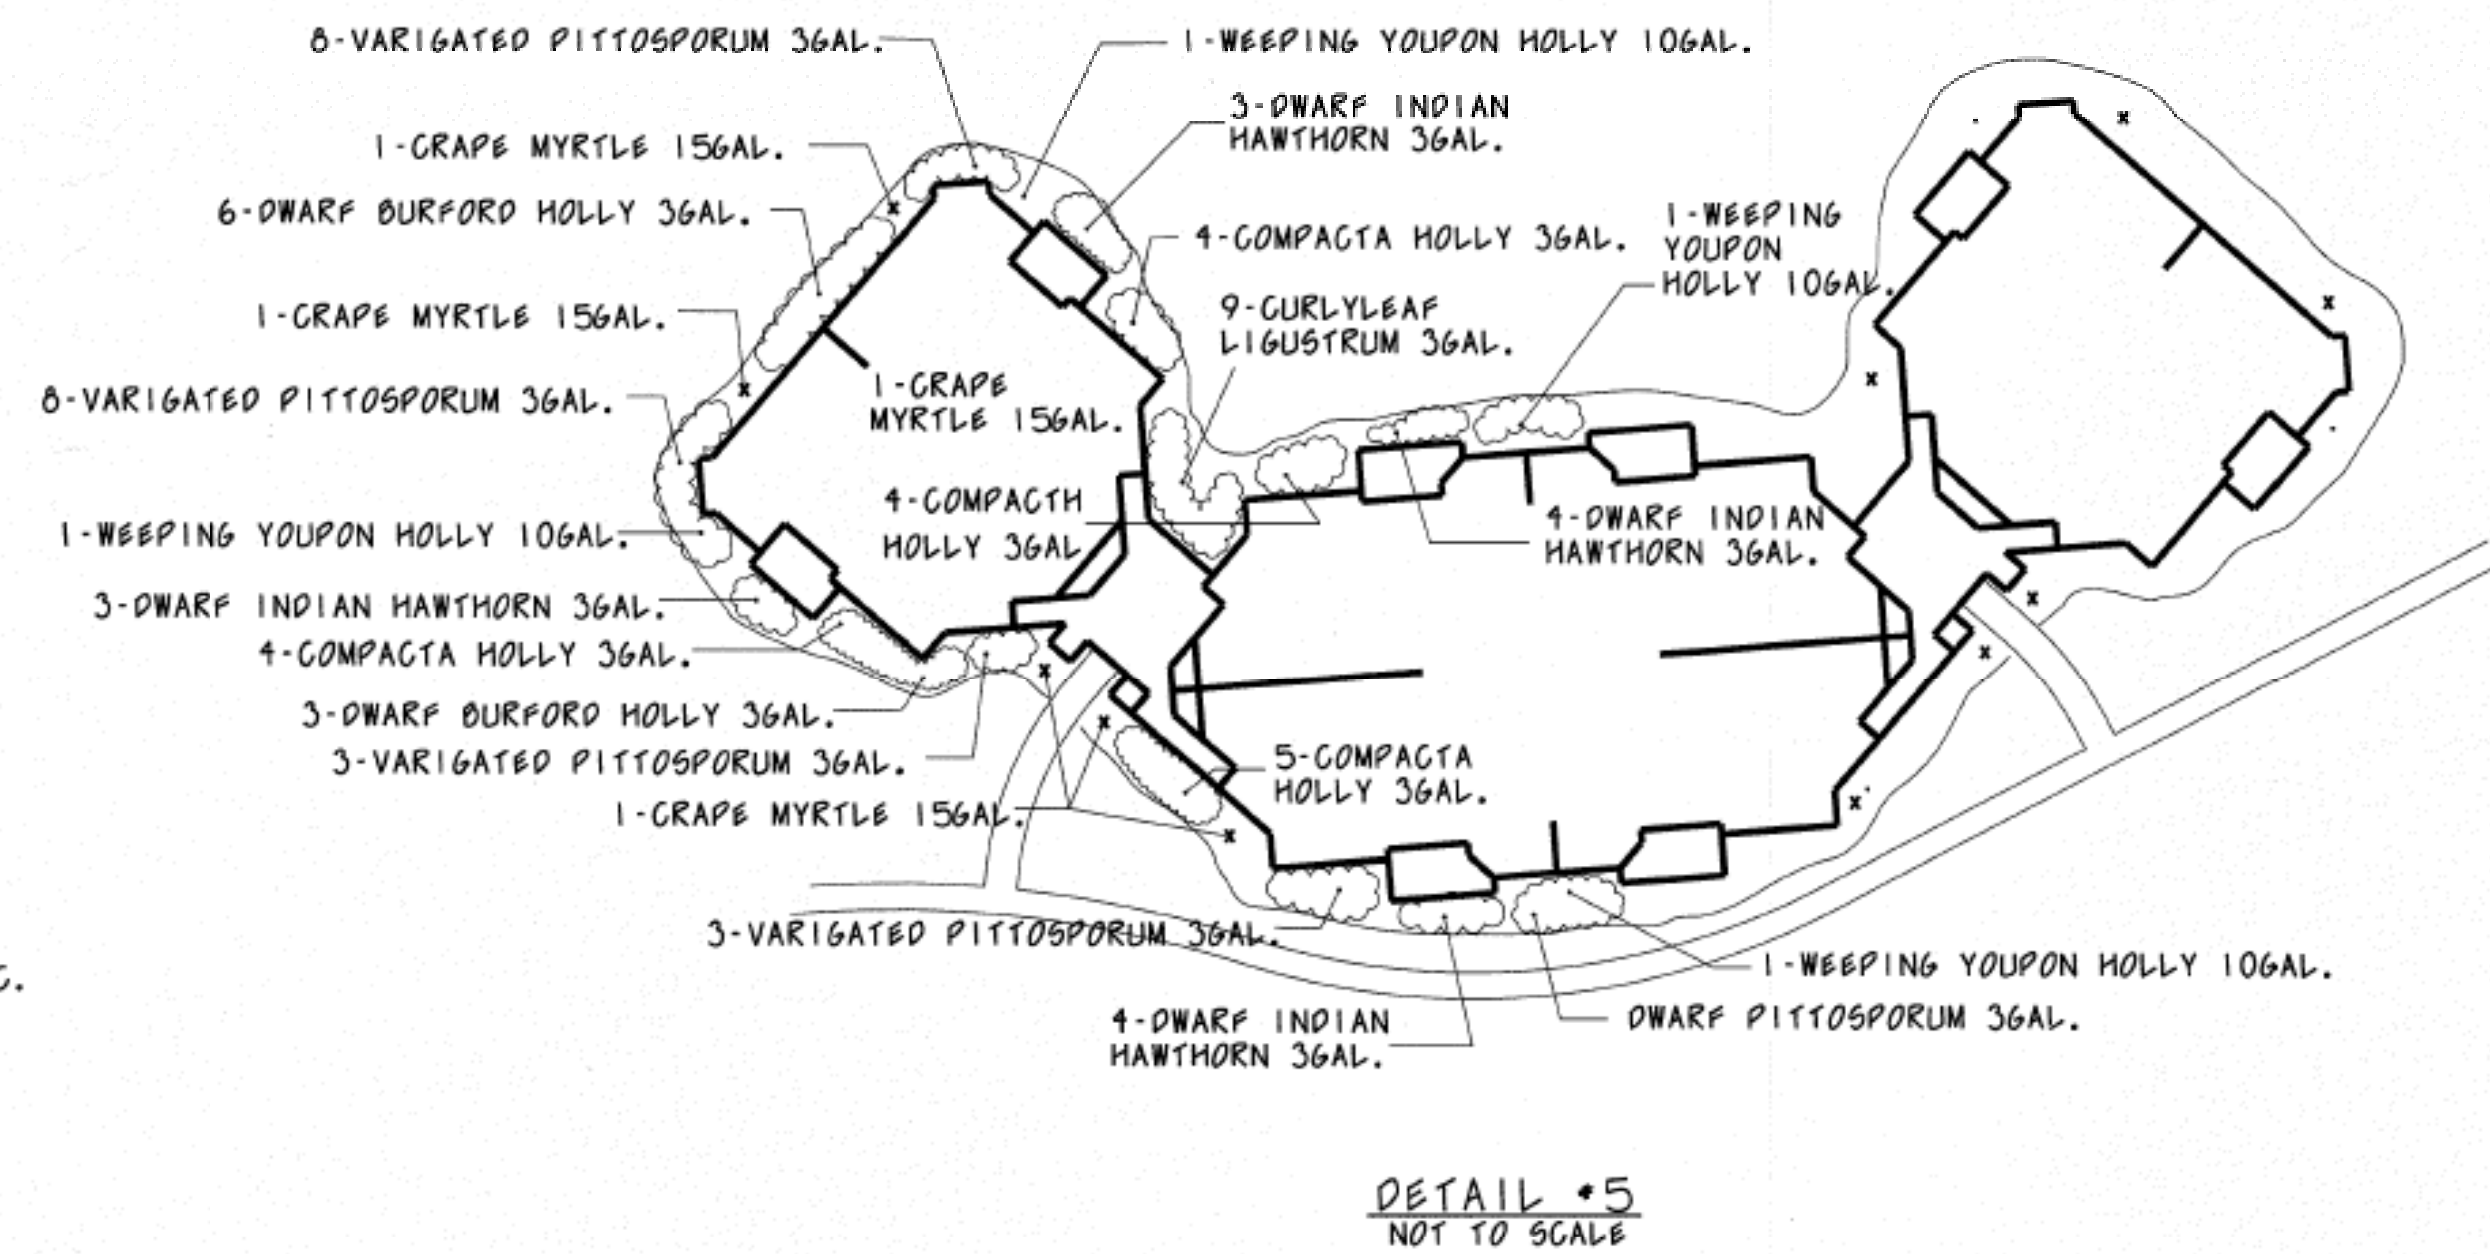 8-VARIGATED PITTOSPORUM 3GAL.
1-WEEPING YOUPON HOLLY 10GAL.
3-DWARF INDIAN
HAWTHORN 3GAL.
1-CRAPE MYRTLE 15GAL.
6-DWARF BURFORD HOLLY 3GAL.
4-COMPACTA HOLLY 3GAL.
1-WEEPING
YOUPON
HOLLY 10GAL.
1-CRAPE MYRTLE 15GAL.
9-CURLYLEAF
LIGUSTRUM 3GAL.
8-VARIGATED PITTOSPORUM 3GAL.
1-CRAPE
MYRTLE 15GAL.
4-COMPACTH
HOLLY 3GAL
4-DWARF INDIAN
HAWTHORN 3GAL.
1-WEEPING YOUPON HOLLY 10GAL.
3-DWARF INDIAN HAWTHORN 3GAL.
4-COMPACTA HOLLY 3GAL.
3-DWARF BURFORD HOLLY 3GAL.
3-VARIGATED PITTOSPORUM 3GAL.
5-COMPACTA
HOLLY 3GAL.
1-CRAPE MYRTLE 15GAL.
3-VARIGATED PITTOSPORUM 3GAL.
1-WEEPING YOUPON HOLLY 10GAL.
4-DWARF INDIAN
HAWTHORN 3GAL.
DWARF PITTOSPORUM 3GAL.
DETAIL #5
NOT TO SCALE